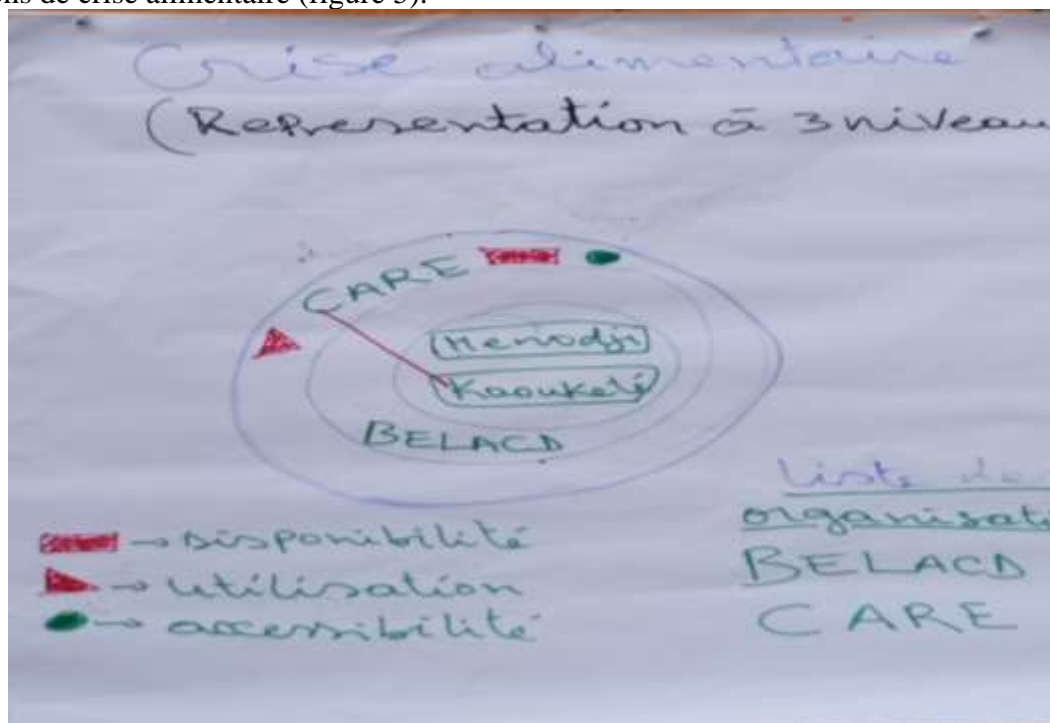 de crise alimentaire (figure 3).
Crise alimentaire
(Representation à 3 niveau
CARE
Menodji
Kaoukelé
BELACD
→ Disponibilité
→ utilisation
→ accessibilité
Liste de
organisati
BELACD
CARE